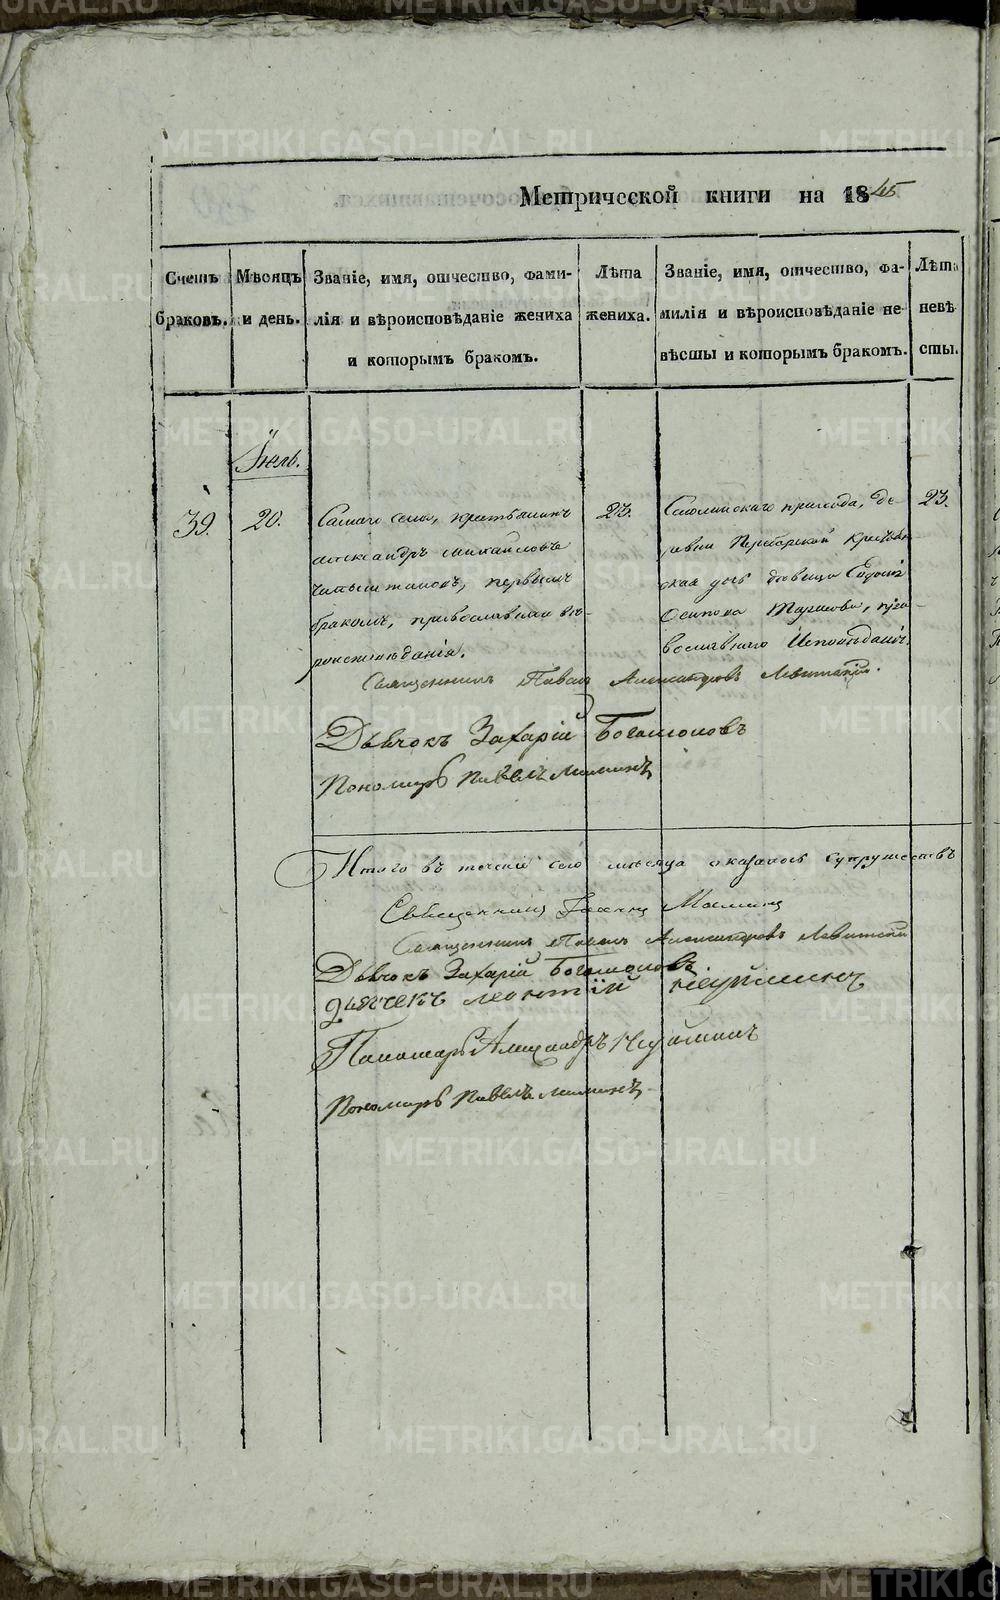 Метрической книги на 1845
Счетъ браковъ.
Мѣсяцъ и день.
Званіе, имя, отчество, фами-
лія и вѣроисповѣданіе жениха
и которымъ бракомъ.
Лѣта
жениха.
Званіе, имя, отчество, фа-
милія и вѣроисповѣданіе не-
вѣсты и которымъ бракомъ.
Лѣта
невѣ
сты.
Іюль.
39.
20.
Самаго села, крестьянинъ
Александръ Михайловъ
первымъ
бракомъ, православнаго вѣ-
роисповѣданія.
23.
прихода, де-
ревни крестьян
ская дочь дѣвица
Осипова пра-
вославнаго исповѣданія.
23.
Священникъ Павелъ Александровъ Левитскій.
Дьячокъ Захарій Богомоловъ
Пономарь Павелъ Маминъ
Итого въ теченіи сего мѣсяца оказалось супружествъ
Священникъ Іоаннъ Маминъ
Священникъ Павелъ Александровъ Левитскій
Дьячокъ Захарій Богомоловъ
дьячекъ леонтій неуйминъ
Пономарь Александръ Неуйминъ
Пономарь Павелъ Маминъ
METRIKI.GASO-URAL.RU